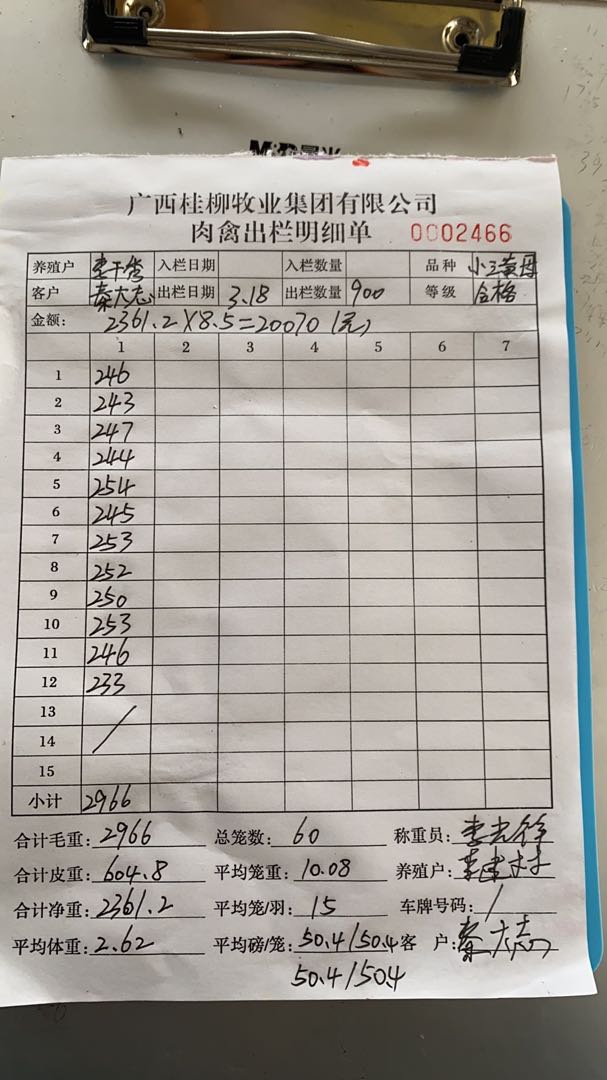 M&G 晨光
广西桂柳牧业集团有限公司
肉禽出栏明细单 0002466
养殖户 入栏日期 入栏数量 品种 小三黄母
客户 秦大志 出栏日期 3.18 出栏数量 900 等级 合格
金额: 2361.2×8.5=20070(元)
1 2 3 4 5 6 7
1 246
2 243
3 247
4 244
5 254
6 245
7 253
8 252
9 250
10 253
11 246
12 233
13 /
14
15
小计 2966
合计毛重: 2966 总笼数: 60 称重员:
合计皮重: 604.8 平均笼重: 10.08 养殖户:
合计净重: 2361.2 平均笼/羽: 15 车牌号码: /
平均体重: 2.62 平均磅/笼: 50.4/50.4 客 户: 秦大志
50.4/50.4